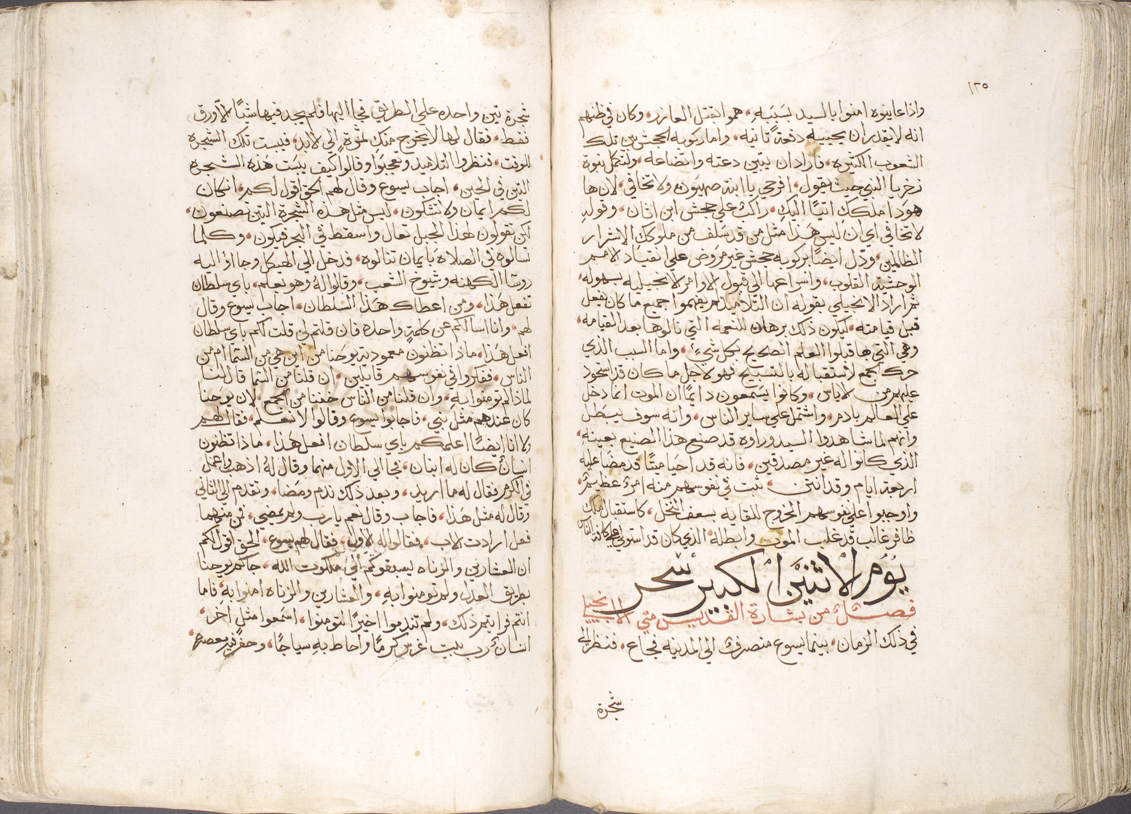 ١٣٥
واذا عاينوه امنوا بالسيد بسببه هموا بقتل العازر وكان في ظنهم
انه لا يقدر ان يحييه دفعة ثانيه واما ركوبه الجحش بين تلك
الشعوب الكثيره فاراد ان يبين دعته واتضاعه ولتكمل نبوة
زخريا النبي حيث يقول افرحي يا ابنة صهيون ولا تخافي لان ها
هوذا ملكك اتيا اليك راكب على جحش ابن اتان وقوله
لا تخافي اي ان ليس هذا مثل من قد سلف من ملوكك الاشرار
الظالمين ودل ايضا بركوبه جحش غير مروض على انقياد الامم
الوحشية القلوب واسراعها الى قبول الاوامر الانجيليه بسهوله
ثم اراد الانجيلي بقوله ان التلاميذ لم يفهموا جميع ما كان يفعل
قبل قيامته ليكون ذلك برهان للنعمه التي نالوها بعد القيامه
وهي التي بها قبلوا العلم الصحيح بكل شيء واما السبب الذي
حرك الجمع لاستقباله بالتسبيح فهو لاجل ما كان قد استحوذ
عليهم من الاياس وكانوا يسمعون دايما ان الموت انما دخل
على العالم بادم واشتمل على ساير الناس وانه سوف يبطل
وانهم لما شاهدوا السيد وراوه قد صنع هذا الصنيع بعينه
الذي كانوا له غير مصدقين فانه قد احيا ميتا قد مضا عليه
اربعة ايام وقد انتن ثبت في نفوسهم منه امرا عظيم
واوجبوا على نفوسهم الخروج للقايه بسعف النخل كاستقبال ملك
ظافر غالب قد غلب الموت وابطله الذي كان قد استولى على كافة الناس
يوم الاثنين الكبير سحر
فصل من بشارة القديس متي الانجيلي
في ذلك الزمان بينما يسوع منصرف الى المدينه فجاع فنظر الى
شجرة
شجرة تين واحده على الطريق فجا اليها فلم يجد فيها شيا الا ورق
فقط فقال لها لا يخرج منك ثمرة الى الابد فيبست تلك الشجرة
للوقت فنظروا التلاميذ وتعجبوا وقالوا كيف يبست هذه الشجرة
التين في الحين اجاب يسوع وقال لهم الحق اقول لكم ان كان
لكم ايمان ولا تشكون ليس مثل هذه الشجرة التين تصنعون
لكن تقولون لهذا الجبل تعال واسقط في البحر فيكون وكلما
تسالوه في الصلاة بايمان تنالوه فدخل الى الهيكل وجا اليه
روسا الكهنه وشيوخ الشعب وقالوا له وهو يعلم باي سلطان
تفعل هذا ومن اعطاك هذا السلطان اجاب يسوع وقال
لهم وانا اسالكم عن كلمة واحده فان قلتم لي قلت لكم باي سلطان
افعل هذا ماذا تظنون معمودية يوحنا من اين هي من السما ام من
الناس ففكروا في نفوسهم قايلين ان قلنا من السما قال لنا
لماذا لم تومنوا به وان قلنا من الناس خفنا من الجمع لان يوحنا
كان عندهم مثل نبي فاجابوا يسوع وقالوا لا نعلم فقال لهم
ولا انا ايضا اعلمكم باي سلطان افعل هذا ماذا تظنون
انسان كان له ابنان فجا الى الاول منهما وقال له اذهب اعمل
في الكرم فقال له ما اريد وبعد ذلك ندم ومضا وتقدم الى الثاني
وقال له مثل هذا فاجاب وقال نعم يا رب ولم يمضي فمن منهما
فعل ارادت الاب فقالوا له الاول فقال لهم يسوع الحق اقول لكم
ان العشارين والزناه ليسبقوكم الى ملكوت الله جاكم يوحنا
بطريق العدل ولم تومنوا به والعشارين والزناه امنوا به فاما
انتم فرايتم ذلك ولم تندموا اخيرا لتومنوا اسمعوا مثل اخر
انسان رب بيت غرس كرما واحاط به سياجا وحفر فيه معصره